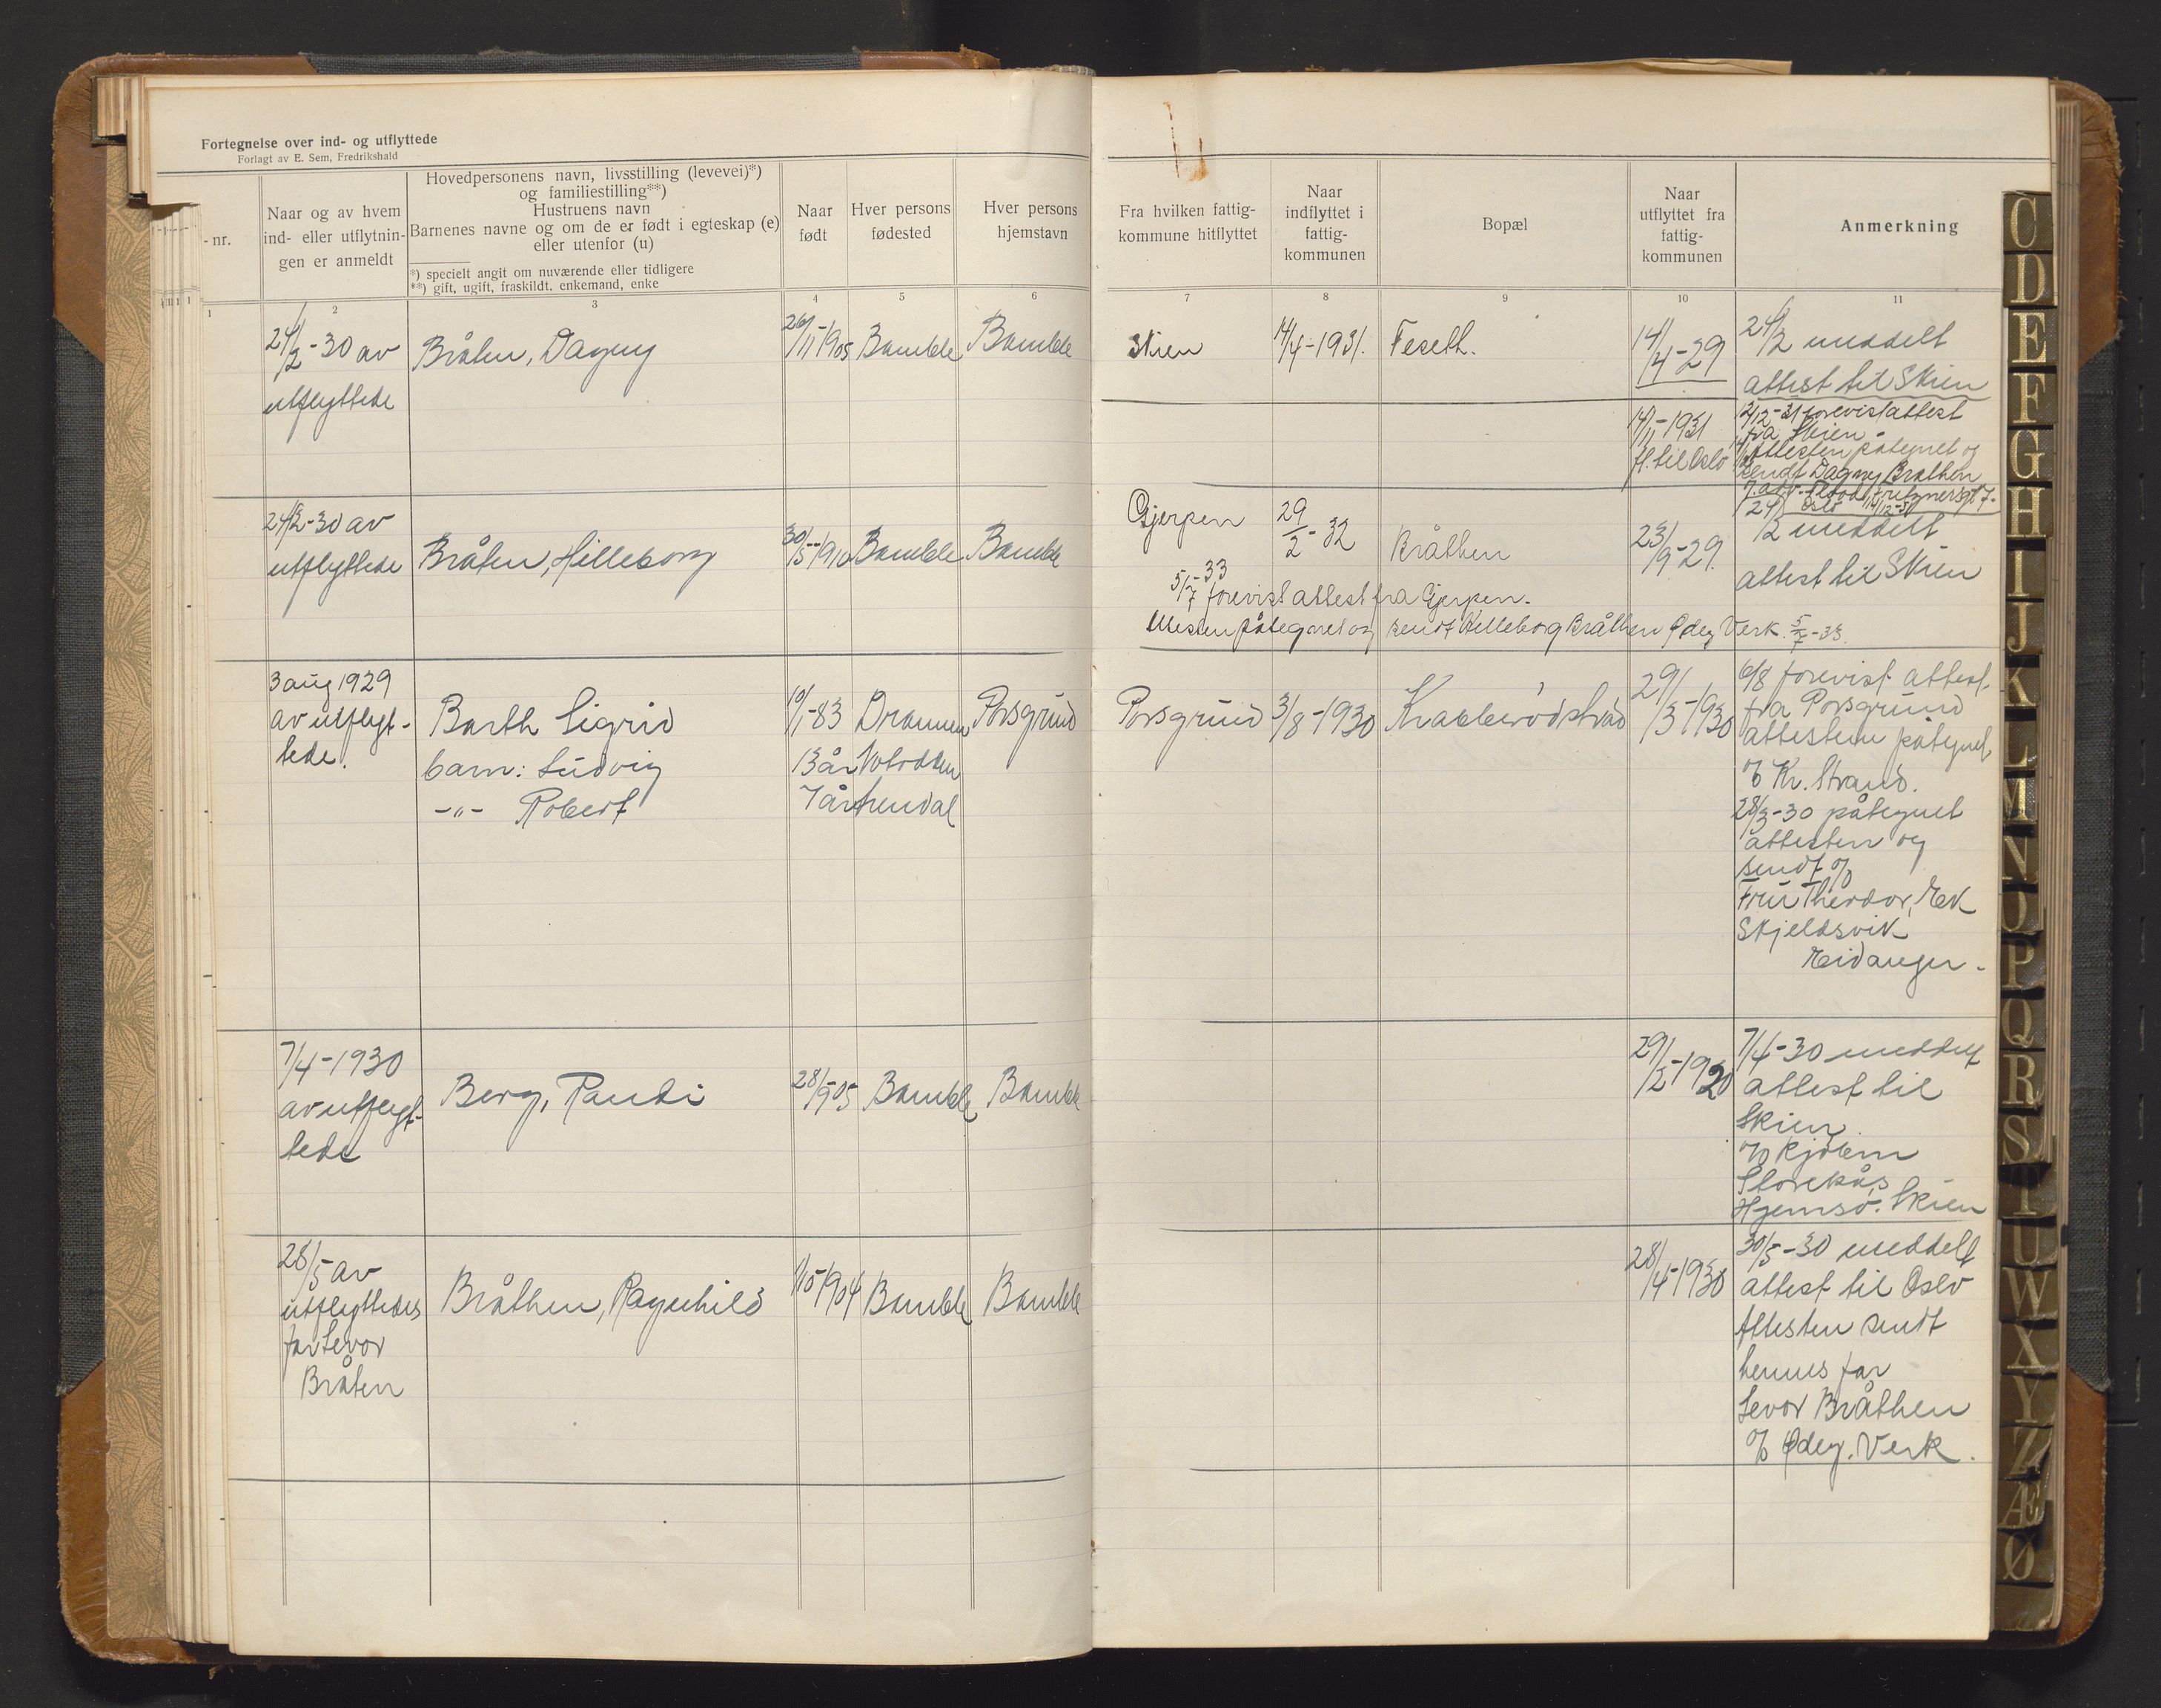 Fortegnelse over ind- og utflyttede
Forlagt av E. Sem, Fredrikshald
- nr.
Naar og av hvem
ind- eller utflytnin-
gen er anmeldt
Hovedpersonens navn, livsstilling (levevei)*)
og familiestilling**)
Hustruens navn
Barnenes navne og om de er født i egteskap (e)
eller utenfor (u)
*) specielt angit om nuværende eller tidligere
**) gift, ugift, fraskildt, enkemand, enke
Naar
født
Hver persons
fødested
Hver persons
hjemstavn
Fra hvilken fattig-
kommune hitflyttet
Naar
indflyttet i
fattig-
kommunen
Bopæl
Naar
utflyttet fra
fattig-
kommunen
Anmerkning
1 2 3 4 5 6 7 8 9 10 11
24/2-30 av
utflyttede
Bråten, Dagny
26/11-1905 Bamble Bamble
Skien 14/4-1931. Feseth. 14/4-29
24/2 meddelt
attest til Skien
14/11-1931
fl. til Oslo
12/12-31 forevist attest
fra Skien -
Attesten påtegnet og
sendt Dagny Bråthen
Oslo
24/2-30 av
utflyttede
Bråten, Hilleborg
30/5-1910 Bamble Bamble
Gjerpen 29/2-32 Bråthen 23/9-29.
24/2 meddelt
attest til Skien
5/7-33 forevist attest fra Gjerpen.
Attesten påtegnet og sendt Hilleborg Bråthen Ødeg. Verk. 5/7-33.
3 aug 1929
av utflyt-
tede.
Barth Sigrid
barn: Ludvig
-"- Robert
10/1-83 Drammen Porsgrund
13 år Notodden
7 år Arendal
Porsgrund 3/8-1930 Krabberødstrand 29/3-1930
6/8 forevist attest
fra Porsgrund
attesten påtegnet
% Kr. Strand.
28/3-30 påtegnet
attesten og
sendt %
Fru Theodor, Eek
Skjeldsvik
Eidanger.
7/4-1930
av utflyt-
tede
Berg, Randi
28/9 05 Bamble Bamble
29/2-1920
7/4-30 meddelt
attest til
Skien
% Kjøbm
Storekås
Hjemsø. Skien
28/5 av
utflyttedes
far Levor
Bråten
Bråthen, Ragnhild
1/5-1904 Bamble Bamble
28/4-1930
30/5-30 meddelt
attest til Oslo
Attesten sendt
hennes far
Levor Bråthen
% Ødeg. Verk.
C
D
E
F
G
H
I
J
K
L
M
N
O
P
Q
R
S
T
U
W
X
Y
Z
Æ
Ø